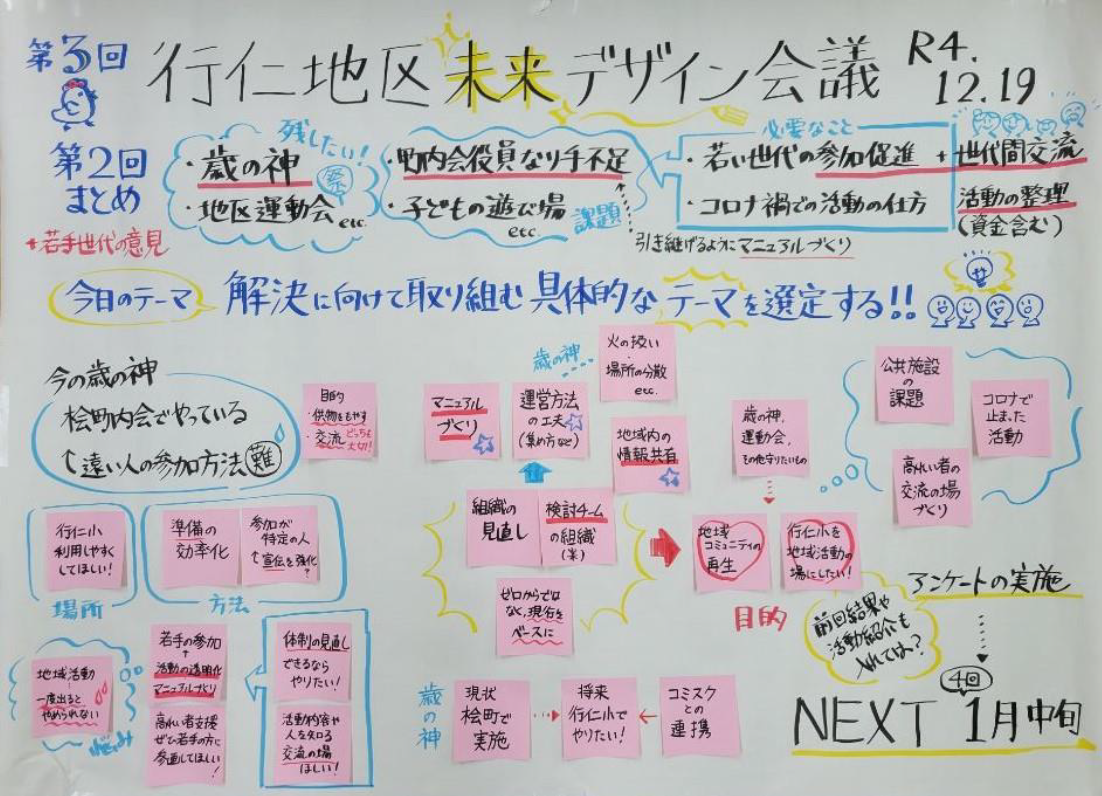 第3回
行仁地区未来デザイン会議
R4.
12.19
第2回
まとめ
+若手世代の意見
残したい!
・歳の神
祭
・地区運動会
etc.
・町内会役員なり手不足
・子どもの遊び場
etc.
課題
必要なこと
・若い世代の参加促進 + 世代間交流
・コロナ禍での活動の仕方
活動の整理
(資金含む)
引き継げるようにマニュアルづくり
今日のテーマ
解決に向けて取り組む具体的なテーマを選定する!!
今の歳の神
桧町内会でやっている
↑遠い人の参加方法 難
目的
・供物をもやす
・交流
どっちも
大切!
マニュアル
づくり
運営方法
の工夫
(集め方など)
歳の神
火の扱い
・場所の分散
etc.
地域内の
情報共有
歳の神、
運動会、
その他守りたいもの
公共施設
の
課題
コロナで
止まった
活動
高れい者の
交流の場
づくり
行仁小
利用しやすく
してほしい!
場所
準備の
効率化
参加が
特定の人
↑宣伝を強化?
方法
組織の
見直し
検討チーム
の組織
(米)
ゼロからでは
なく、現石を
ベースに
地域
コミュニティの
再生
行仁小を
地域活動の
場にしたい!
目的
アンケートの実施
前回結果や
活動紹介も
入れては?
地域活動
一度出ると
やめられない
若手の参加
+
活動の透明化
マニュアルづくり
高れい者支援
ぜひ若手の方に
参画してほしい!
体制の見直し
できるなら
やりたい!
活動内容や
人を知る
交流の場
ほしい!
歳の神
現状
桧町で
実施
将来
行仁小で
やりたい!
コミスク
との
連携
4回
NEXT 1月中旬